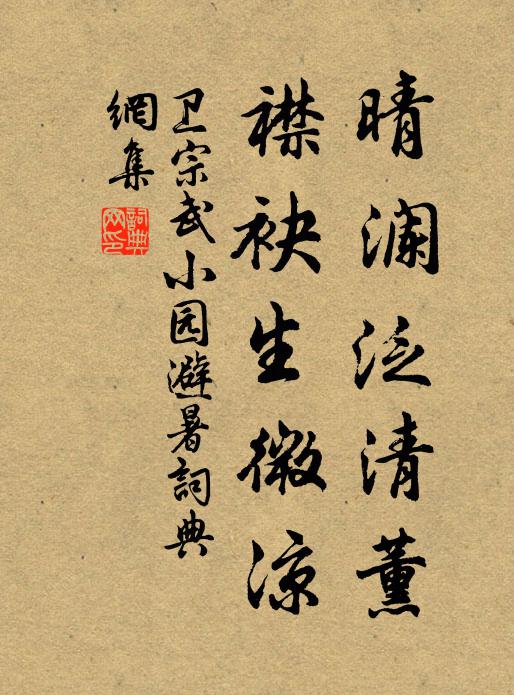 晴澜泛清薰
襟袂生微涼
卫宗武小园避暑詞典
網集
詞典网印